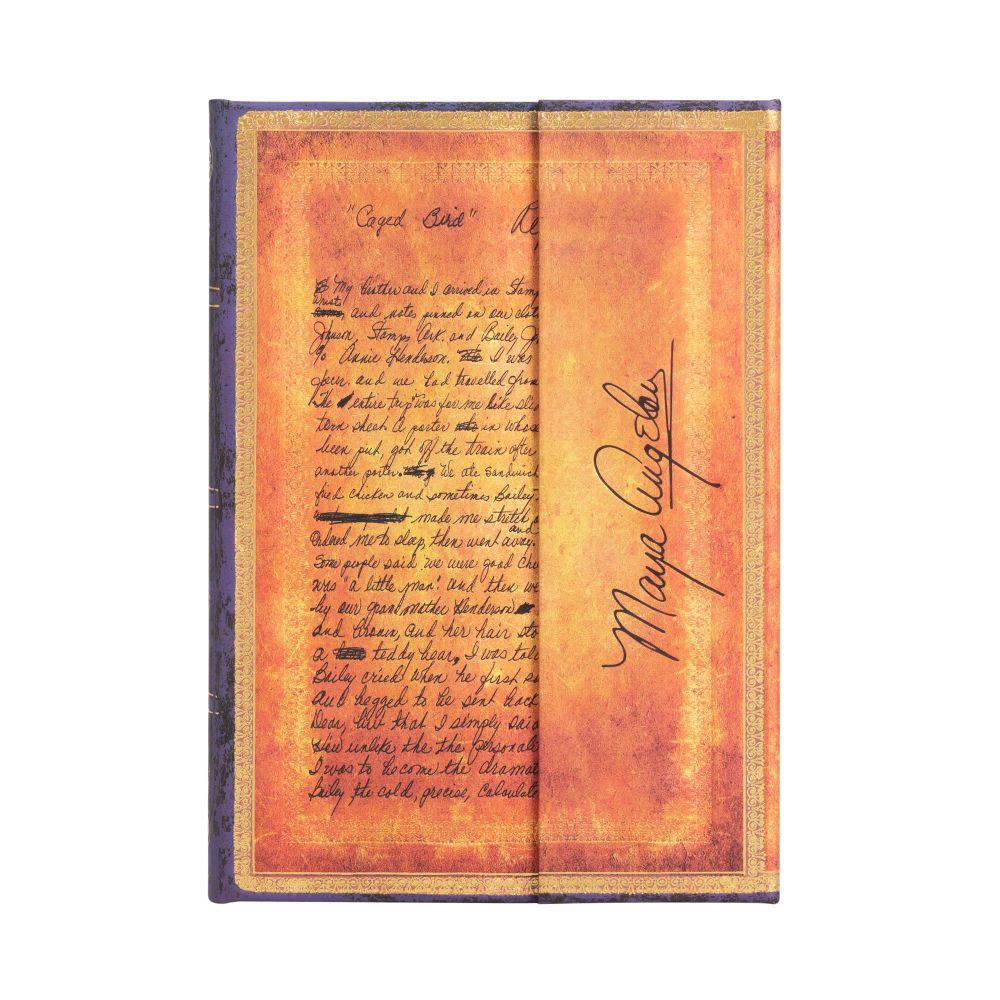 "Caged Bird"
My brother and I arrived in Stamp
wrist
and notes pinned on our clot
Johnson, Stamps Ark. and Bailey J
% Annie Henderson. I was
four. and we had travelled from
The entire trip was for me like sli
torn sheet. A porter in whose
been put, got off the train after
another porter. We ate sandwich
fried chicken and sometimes Bailey
made me stretch
and
Ordered me to sleep, then went away.
Some people said we were good chi
was "a little man". and then we
by our grandmother Henderson
and brown, and her hair sto
a teddy bear, I was tol
Bailey cried when he first s
and begged to be sent back
Dear, but that I simply said
How unlike the the personali
I was to become the dramat
Bailey the cold, precise, calculate
Maya Angelou